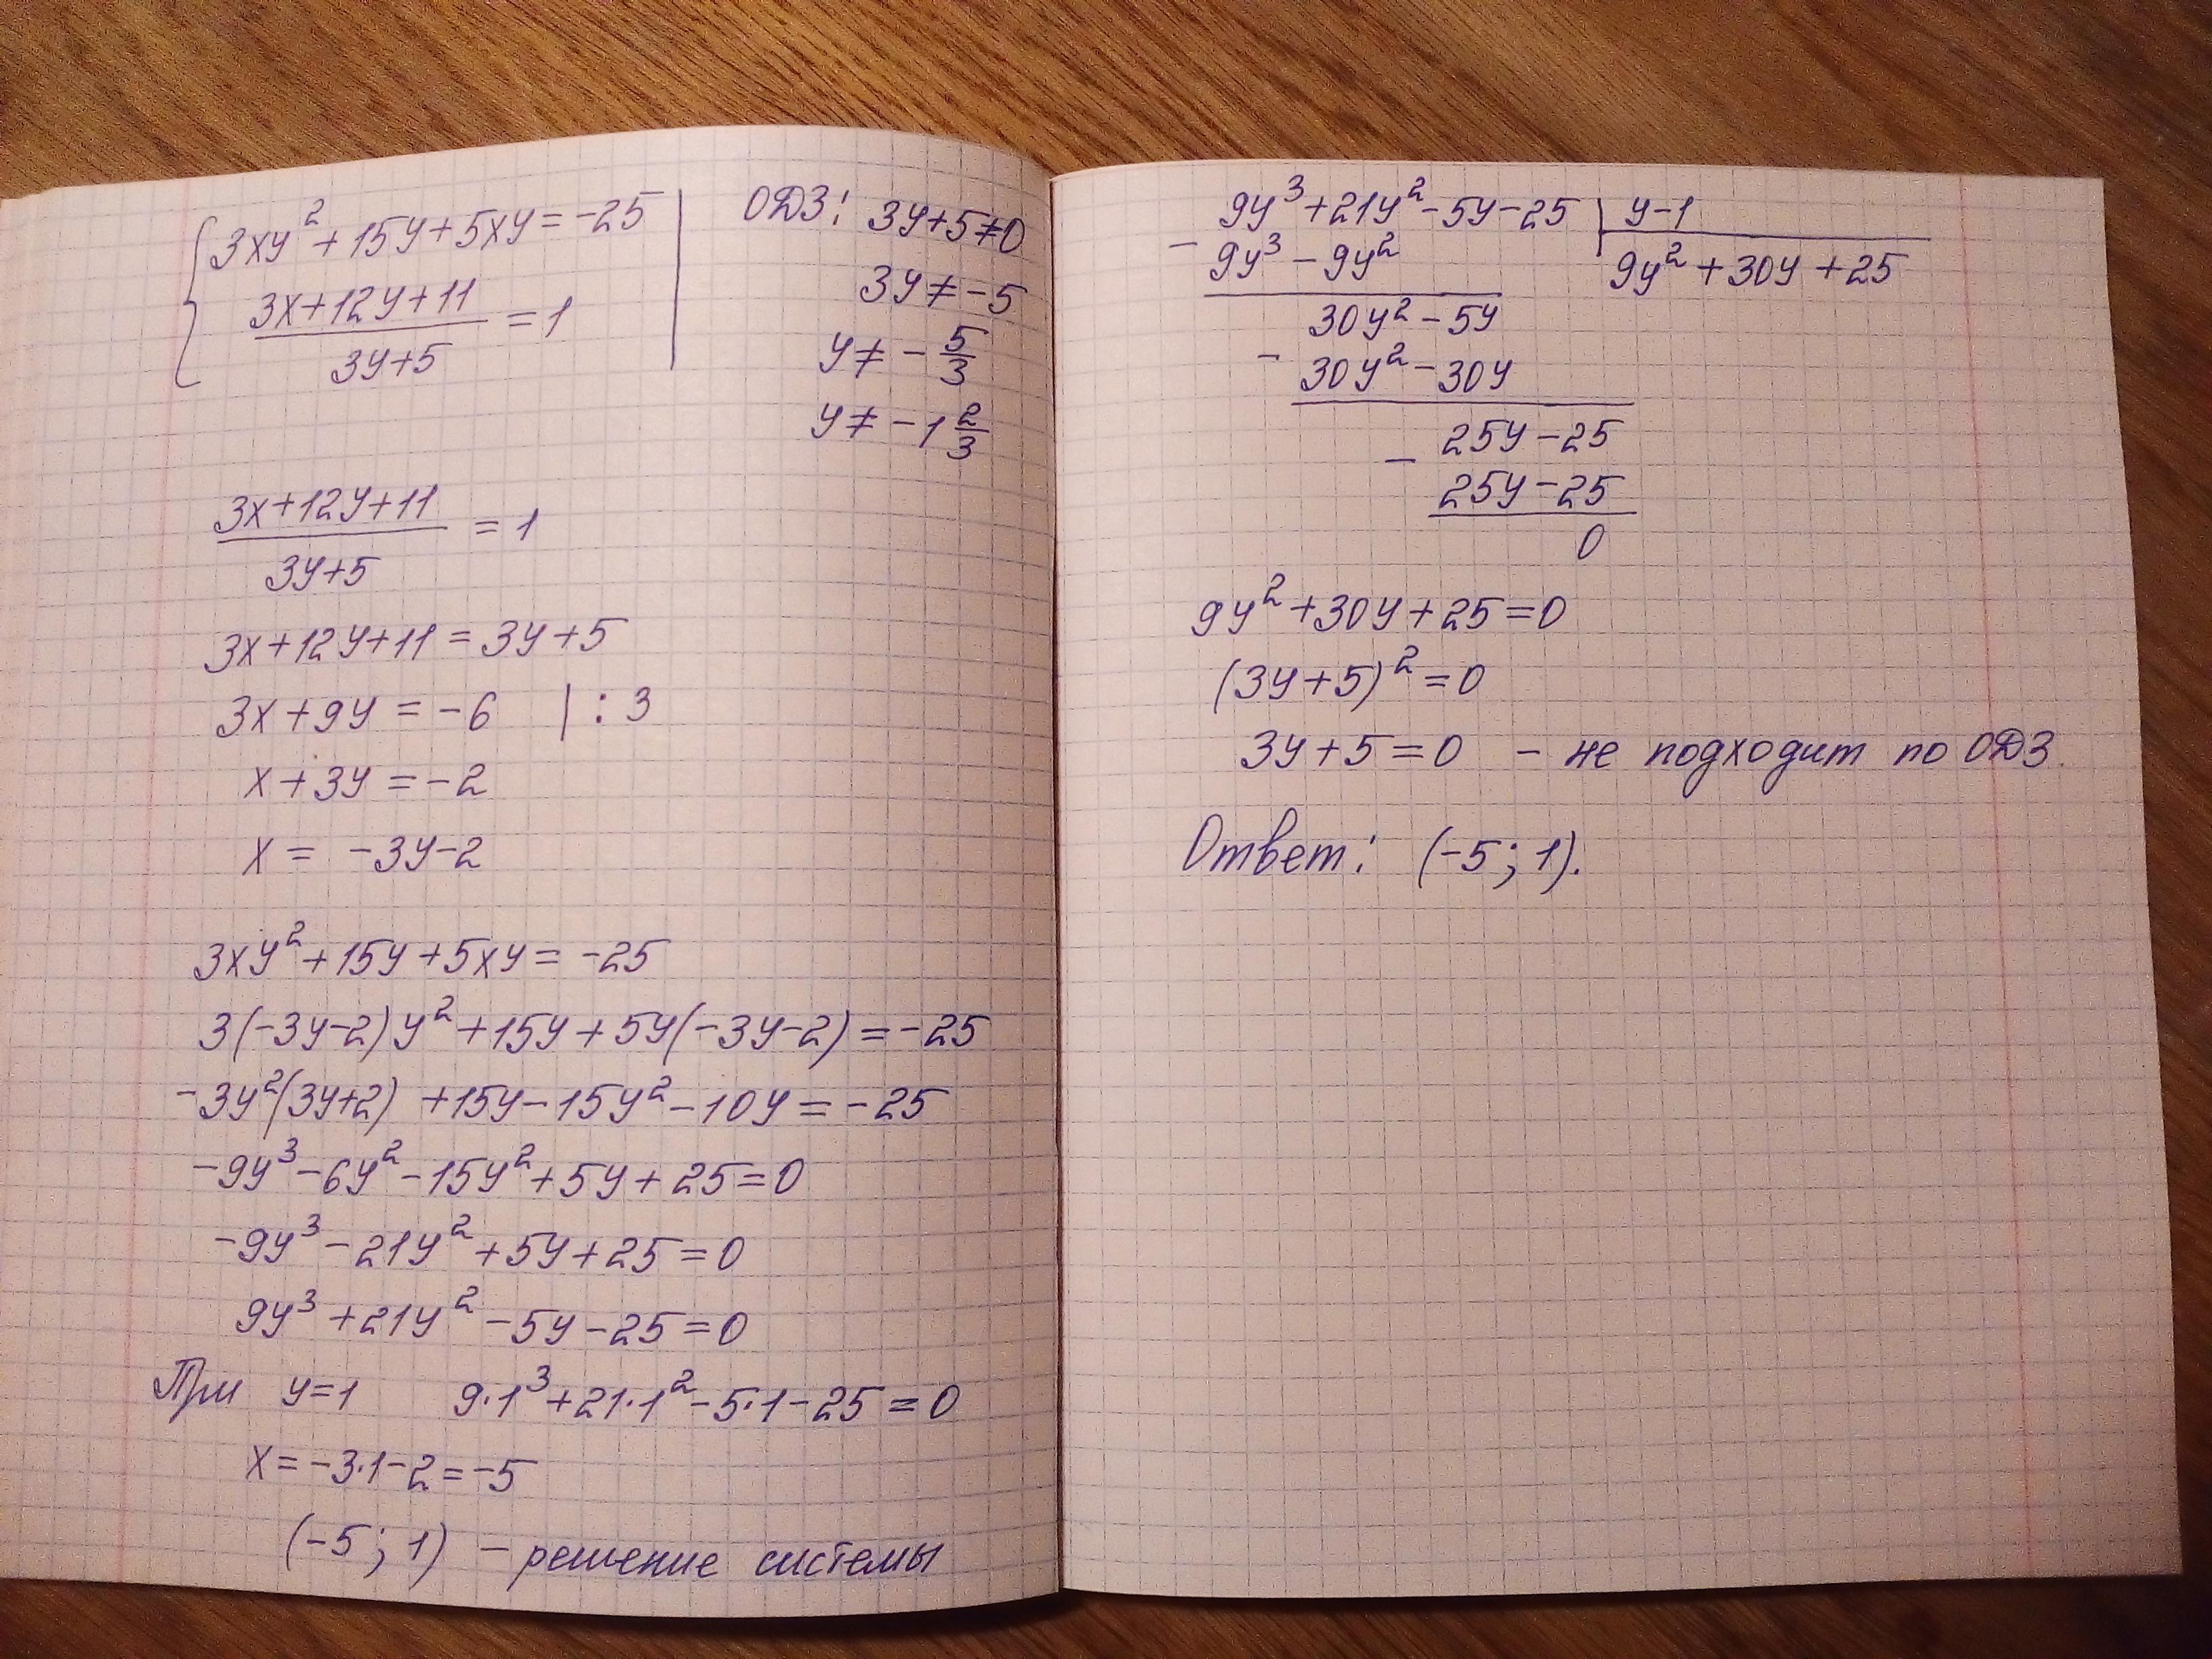 3xy² + 15y + 5xy = -25
(3x+12y+11)/(3y+5) = 1
ОДЗ: 3y+5≠0
3y ≠ -5
y ≠ - 5/3
y ≠ -1 2/3
(3x+12y+11)/(3y+5) = 1
3x+12y+11 = 3y+5
3x + 9y = -6 | : 3
x + 3y = -2
x = -3y-2
3xy² + 15y + 5xy = -25
3(-3y-2)y² + 15y + 5y(-3y-2) = -25
-3y²(3y+2) + 15y - 15y² - 10y = -25
-9y³ - 6y² - 15y² + 5y + 25 = 0
-9y³ - 21y² + 5y + 25 = 0
9y³ + 21y² - 5y - 25 = 0
При y=1 9·1³ + 21·1² - 5·1 - 25 = 0
x = -3·1-2 = -5
(-5; 1) - решение системы
9y³ + 21y² - 5y - 25 | y-1
- 9y³ - 9y²
9y² + 30y + 25
30y² - 5y
- 30y² - 30y
25y - 25
- 25y - 25
0
9y² + 30y + 25 = 0
(3y+5)² = 0
3y+5 = 0 - не подходит по ОДЗ.
Ответ: (-5; 1).